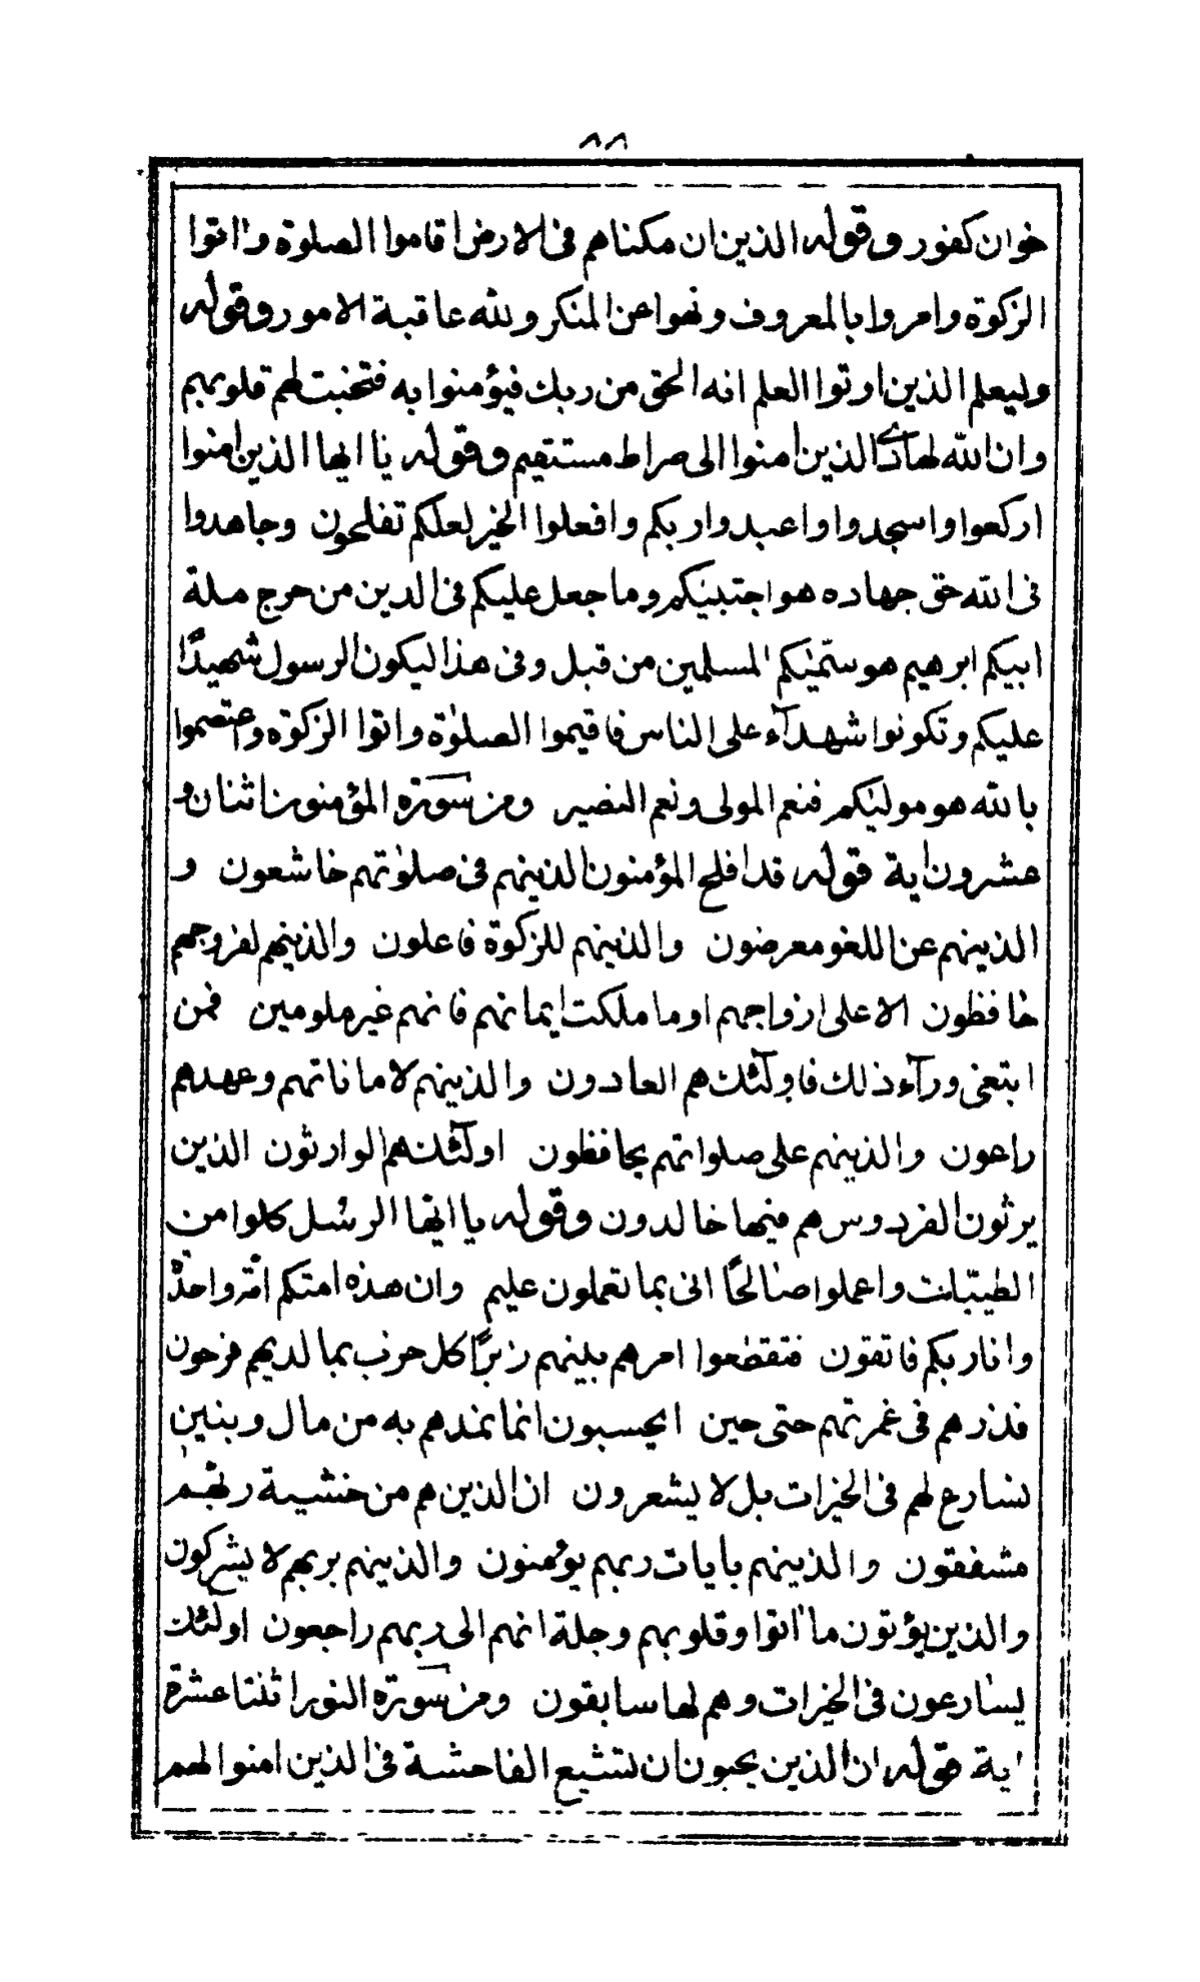 ٨٨
خوان كفور وقوله الذين ان مكناهم فى الارض اقاموا الصلوة واتوا
الزكوة وامروا بالمعروف ونهوا عن المنكر ولله عاقبة الامور وقوله
وليعلم الذين اوتوا العلم انه الحق من ربك فيؤمنوا به فتخبت لهم قلوبهم
وان الله لهادى الذين امنوا الى صراط مستقيم وقوله يا ايها الذين امنوا
اركعوا واسجدوا واعبدوا ربكم وافعلوا الخير لعلكم تفلحون وجاهدوا
فى الله حق جهاده هو اجتبيٰكم وما جعل عليكم فى الدين من حرج ملة
ابيكم ابرهيم هو سمّيٰكم المسلمين من قبل وفى هذا ليكون الرسول شهيدًا
عليكم وتكونوا شهدآء على الناس فاقيموا الصلوٰة واتوا الزكوٰة واعتصموا
بالله هو موليٰكم فنعم المولى ونعم النصير ومن سورة المؤمنون اثنان و
عشرون اية قوله قد افلح المؤمنون الذينهم فى صلوٰتهم خاشعون و
الذينهم عن اللغو معرضون والذينهم للزكوة فاعلون والذينهم لفروجهم
حافظون الا على ازواجهم او ما ملكت ايمانهم فانهم غير ملومين فمن
ابتغى ورآء ذلك فاولٓئك هم العادون والذينهم لاماناتهم وعهدهم
راعون والذينهم على صلواتهم يحافظون اولٓئك هم الوارثون الذين
يرثون الفردوس هم فيها خالدون وقوله يا ايها الرسُل كلوا من
الطيّبات واعملوا صالحًا انى بما تعملون عليم وان هذه امتكم امّة واحدةً
وانا ربكم فاتقون فتقطعوا امرهم بينهم زبرًا كل حزب بما لديهم فرحون
فذرهم فى غمرتهم حتى حين ايحسبون انما نمدهم به من مال وبنين
نسارع لهم فى الخيرات بل لا يشعرون ان الذين هم من خشية ربّهم
مشفقون والذينهم بايات ربهم يؤمنون والذينهم بربهم لا يشركون
والذين يؤتون ما اتوا وقلوبهم وجلة انهم الى ربهم راجعون اولئك
يسارعون فى الخيرات وهم لها سابقون ومن سورة النور اثنتا عشرة
اية قوله ان الذين يحبون ان تشيع الفاحشة فى الذين امنوا لهم